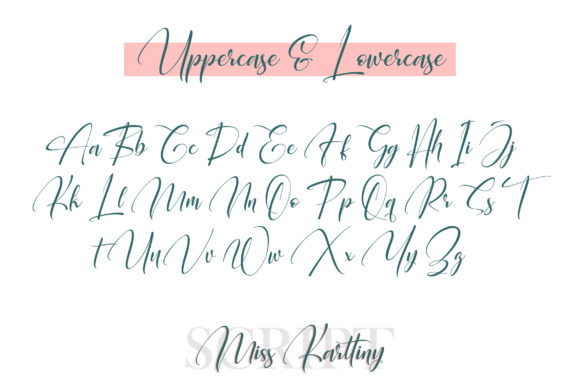 Uppercase & Lowercase
Aa Bb Cc Dd Ee Ff Gg Hh Ii Jj
Kk Ll Mm Nn Oo Pp Qq Rr Ss T
t Uu Vv Ww Xx Yy Zz
SCRIPT
Miss Karttiny